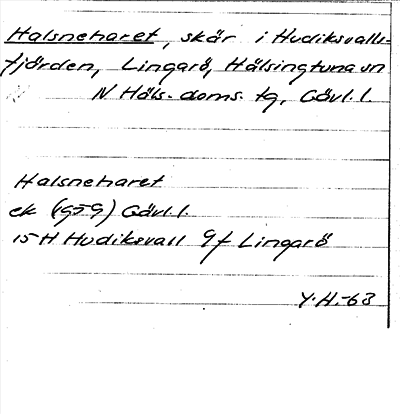 Halsneharet, skär i Hudiksvalls-
fjärden, Lingarö, Hälsingtuna sn
N Häls. doms. tg, Gävl. l.
Halsneharet
ek (1959) Gävl. l.
15 H Hudiksvall 9f Lingarö
Y.H.-63